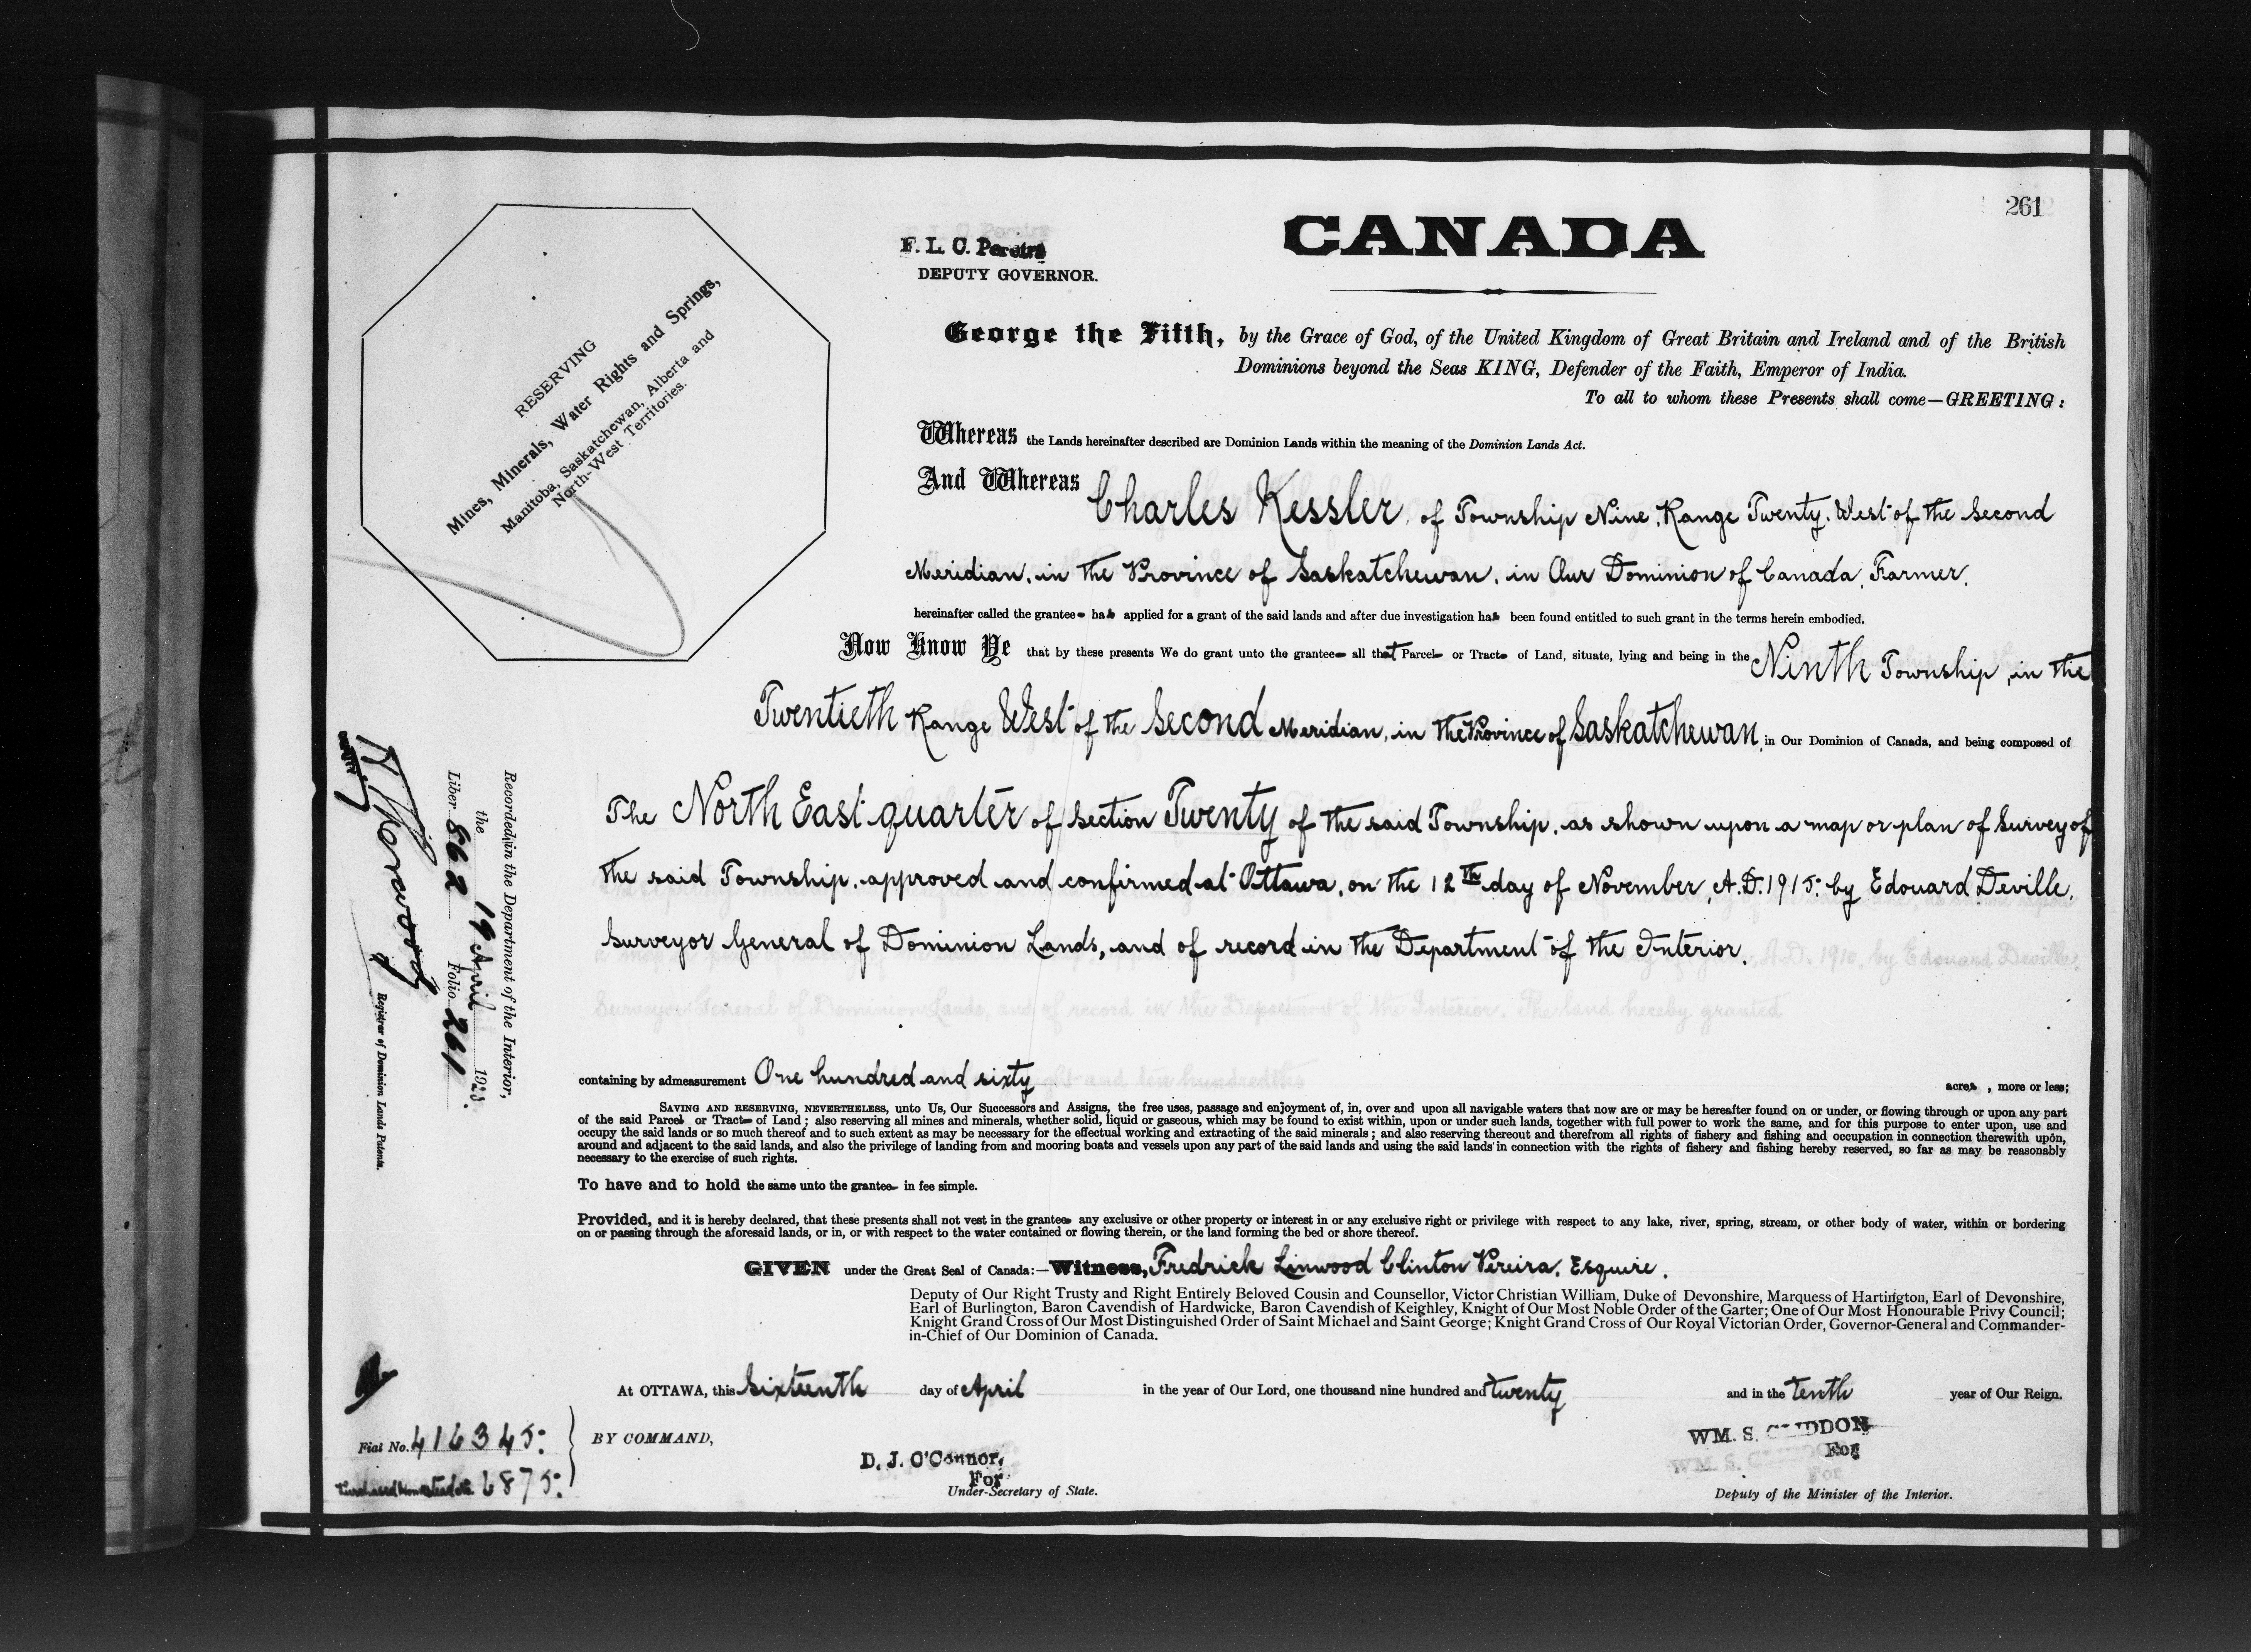 261
CANADA
F. L. C. Pereira
DEPUTY GOVERNOR.
RESERVING
Mines, Minerals, Water Rights and Springs,
Manitoba, Saskatchewan, Alberta and
North-West Territories.
George the Fifth, by the Grace of God, of the United Kingdom of Great Britain and Ireland and of the British
Dominions beyond the Seas KING, Defender of the Faith, Emperor of India.
To all to whom these Presents shall come—GREETING:
Whereas the Lands hereinafter described are Dominion Lands within the meaning of the Dominion Lands Act.
And Whereas Charles Kessler, of Township Nine, Range Twenty, West of the Second
Meridian, in the Province of Saskatchewan, in Our Dominion of Canada, Farmer,
hereinafter called the grantee has applied for a grant of the said lands and after due investigation has been found entitled to such grant in the terms herein embodied.
Now Know Ye that by these presents We do grant unto the grantee all that Parcel or Tract of Land, situate, lying and being in the Ninth Township, in the
Twentieth Range West of the Second Meridian, in the Province of Saskatchewan, in Our Dominion of Canada, and being composed of
The North East quarter of Section Twenty of the said Township, as shown upon a map or plan of Survey of
the said Township, approved and confirmed at Ottawa, on the 12th day of November, A.D. 1915, by Edouard Deville,
Surveyor General of Dominion Lands, and of record in the Department of the Interior.
containing by admeasurement One hundred and sixty acres, more or less;
SAVING AND RESERVING, NEVERTHELESS, unto Us, Our Successors and Assigns, the free uses, passage and enjoyment of, in, over and upon all navigable waters that now are or may be hereafter found on or under, or flowing through or upon any part
of the said Parcel or Tract of Land; also reserving all mines and minerals, whether solid, liquid or gaseous, which may be found to exist within, upon or under such lands, together with full power to work the same, and for this purpose to enter upon, use and
occupy the said lands or so much thereof and to such extent as may be necessary for the effectual working and extracting of the said minerals; and also reserving thereout and therefrom all rights of fishery and fishing and occupation in connection therewith upon,
around and adjacent to the said lands, and also the privilege of landing from and mooring boats and vessels upon any part of the said lands and using the said lands in connection with the rights of fishery and fishing hereby reserved, so far as may be reasonably
necessary to the exercise of such rights.
To have and to hold the same unto the grantee in fee simple.
Provided, and it is hereby declared, that these presents shall not vest in the grantee any exclusive or other property or interest in or any exclusive right or privilege with respect to any lake, river, spring, stream, or other body of water, within or bordering
on or passing through the aforesaid lands, or in, or with respect to the water contained or flowing therein, or the land forming the bed or shore thereof.
GIVEN under the Great Seal of Canada:—Witness, Fredrick Linwood Clinton Pereira, Esquire,
Deputy of Our Right Trusty and Right Entirely Beloved Cousin and Counsellor, Victor Christian William, Duke of Devonshire, Marquess of Hartington, Earl of Devonshire,
Earl of Burlington, Baron Cavendish of Hardwicke, Baron Cavendish of Keighley, Knight of Our Most Noble Order of the Garter; One of Our Most Honourable Privy Council;
Knight Grand Cross of Our Most Distinguished Order of Saint Michael and Saint George; Knight Grand Cross of Our Royal Victorian Order, Governor-General and Commander-
in-Chief of Our Dominion of Canada.
At OTTAWA, this Sixteenth day of April in the year of Our Lord, one thousand nine hundred and twenty and in the tenth year of Our Reign.
BY COMMAND,
D. J. O'Connor,
For
Under-Secretary of State.
WM. S. GLIDDON
For
Deputy of the Minister of the Interior.
Fiat No. 416345
Purchased Homestead 6875
Recorded in the Department of the Interior,
the 19 April 192
Liber 862 Folio 261
Registrar of Dominion Lands Patents.